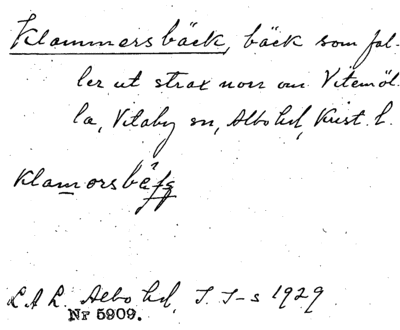 Klammersbäck, bäck som fal-
ler ut strax norr om Vitemöl-
la, Vitaby sn, Albo hd, Krist. l.
Klamorsbäck
L A L. Albo hd, I. I-s 1929
Nr 5909.